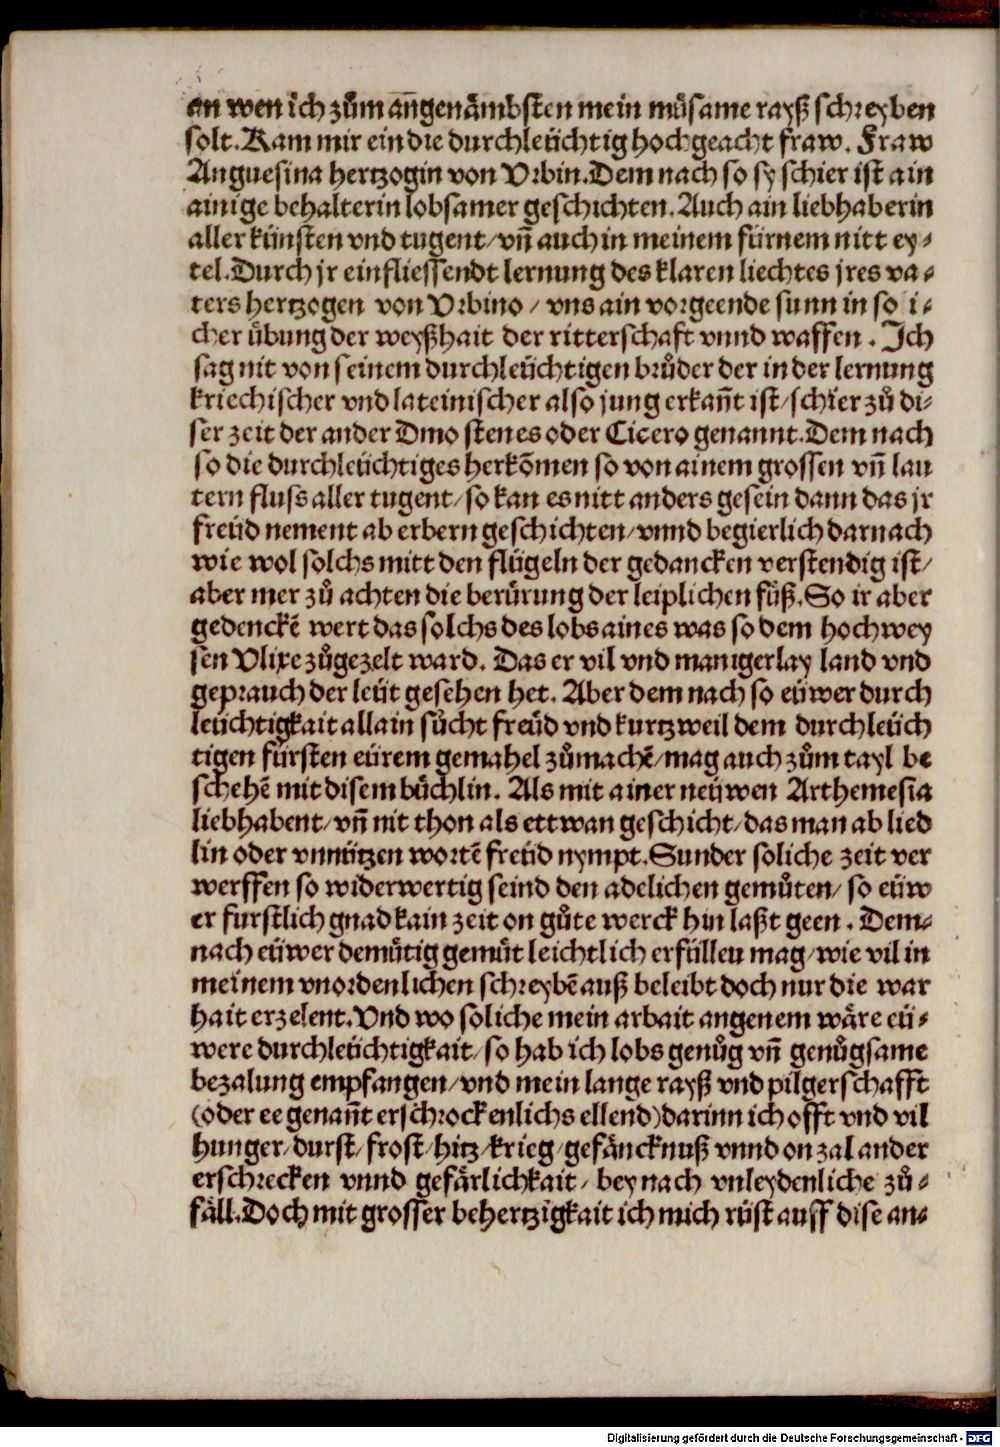 an wen ich zům an̄genåmbsten mein můsame rayß schreyben
solt. Kam mir ein die durchleüchtig hochgeacht fraw. Fraw
Anguesina hertzogin von Vrbin. Dem nach so sy schier ist ain
ainige behalterin lobsamer geschichten. Auch ain liebhaberin
aller künsten vnd tugent/ vn̄ auch in meinem fürnem nitt ey⸗
tel. Durch jr einfliessendt lernung des klaren liechtes jres va⸗
ters hertzogen von Vrbino / vns ain vorgeende sunn in so i⸗
cher übung der weyßhait der ritterschaft vnnd waffen. Ich
sag nit von seinem durchleüchtigen brůder der in der lernung
kriechischer vnd lateinischer also jung erkan̄t ist/ schier zů di⸗
ser zeit der ander Dmo stenes oder Cicero genannt. Dem nach
so die durchleüchtiges herkōmen so von ainem grossen vn̄ lau
tern fluss aller tugent/ so kan es nitt anders gesein dann das jr
freüd nement ab erbern geschichten/ vnnd begierlich darnach
wie wol solchs mitt den flügeln der gedancken verstendig ist/
aber mer zů achten die berürung der leiplichen füß. So ir aber
gedenckē wert das solchs des lobs aines was so dem hochwey
sen Vlixe zůgezelt ward. Das er vil vnd manigerlay land vnd
geprauch der leüt gesehen het. Aber dem nach so eüwer durch
leüchtigkait allain sůcht freüd vnd kurtzweil dem durchleüch
tigen fürsten eürem gemahel zůmachē/ mag auch zům tayl be
schehē mit disem büchlin. Als mit ainer neüwen Arthemesia
liebhabent/ vn̄ nit thon als ettwan geschicht/ das man ab lied
lin oder vnnützen wortē freüd nympt. Sunder soliche zeit ver
werffen so widerwertig seind den adelichen gemůten/ so eüw
er furstlich gnad kain zeit on gůte werck hin laßt geen. Dem⸗
nach eüwer demütig gemüt leichtlich erfülleu mag/ wie vil in
meinem vnordenlichen schreybē auß beleibt doch nur die war
hait erzelent. Vnd wo soliche mein arbait angenem wåre eü⸗
were durchleüchtigkait/ so hab ich lobs genůg vn̄ genůgsame
bezalung empfangen/ vnd mein lange rayß vnd pilgerschafft
(oder ee genan̄t erschrockenlichs ellend) darinn ich offt vnd vil
hunger/ durst/ frost/ hitz/ krieg/ gefåncknuß vnnd on zal ander
erschrecken vnnd gefårlichkait/ bey nach vnleydenliche zů⸗
fåll. Doch mit grosser behertzigkait ich mich rüst auff dise an⸗
Digitalisierung gefördert durch die Deutsche Forschungsgemeinschaft - DFG